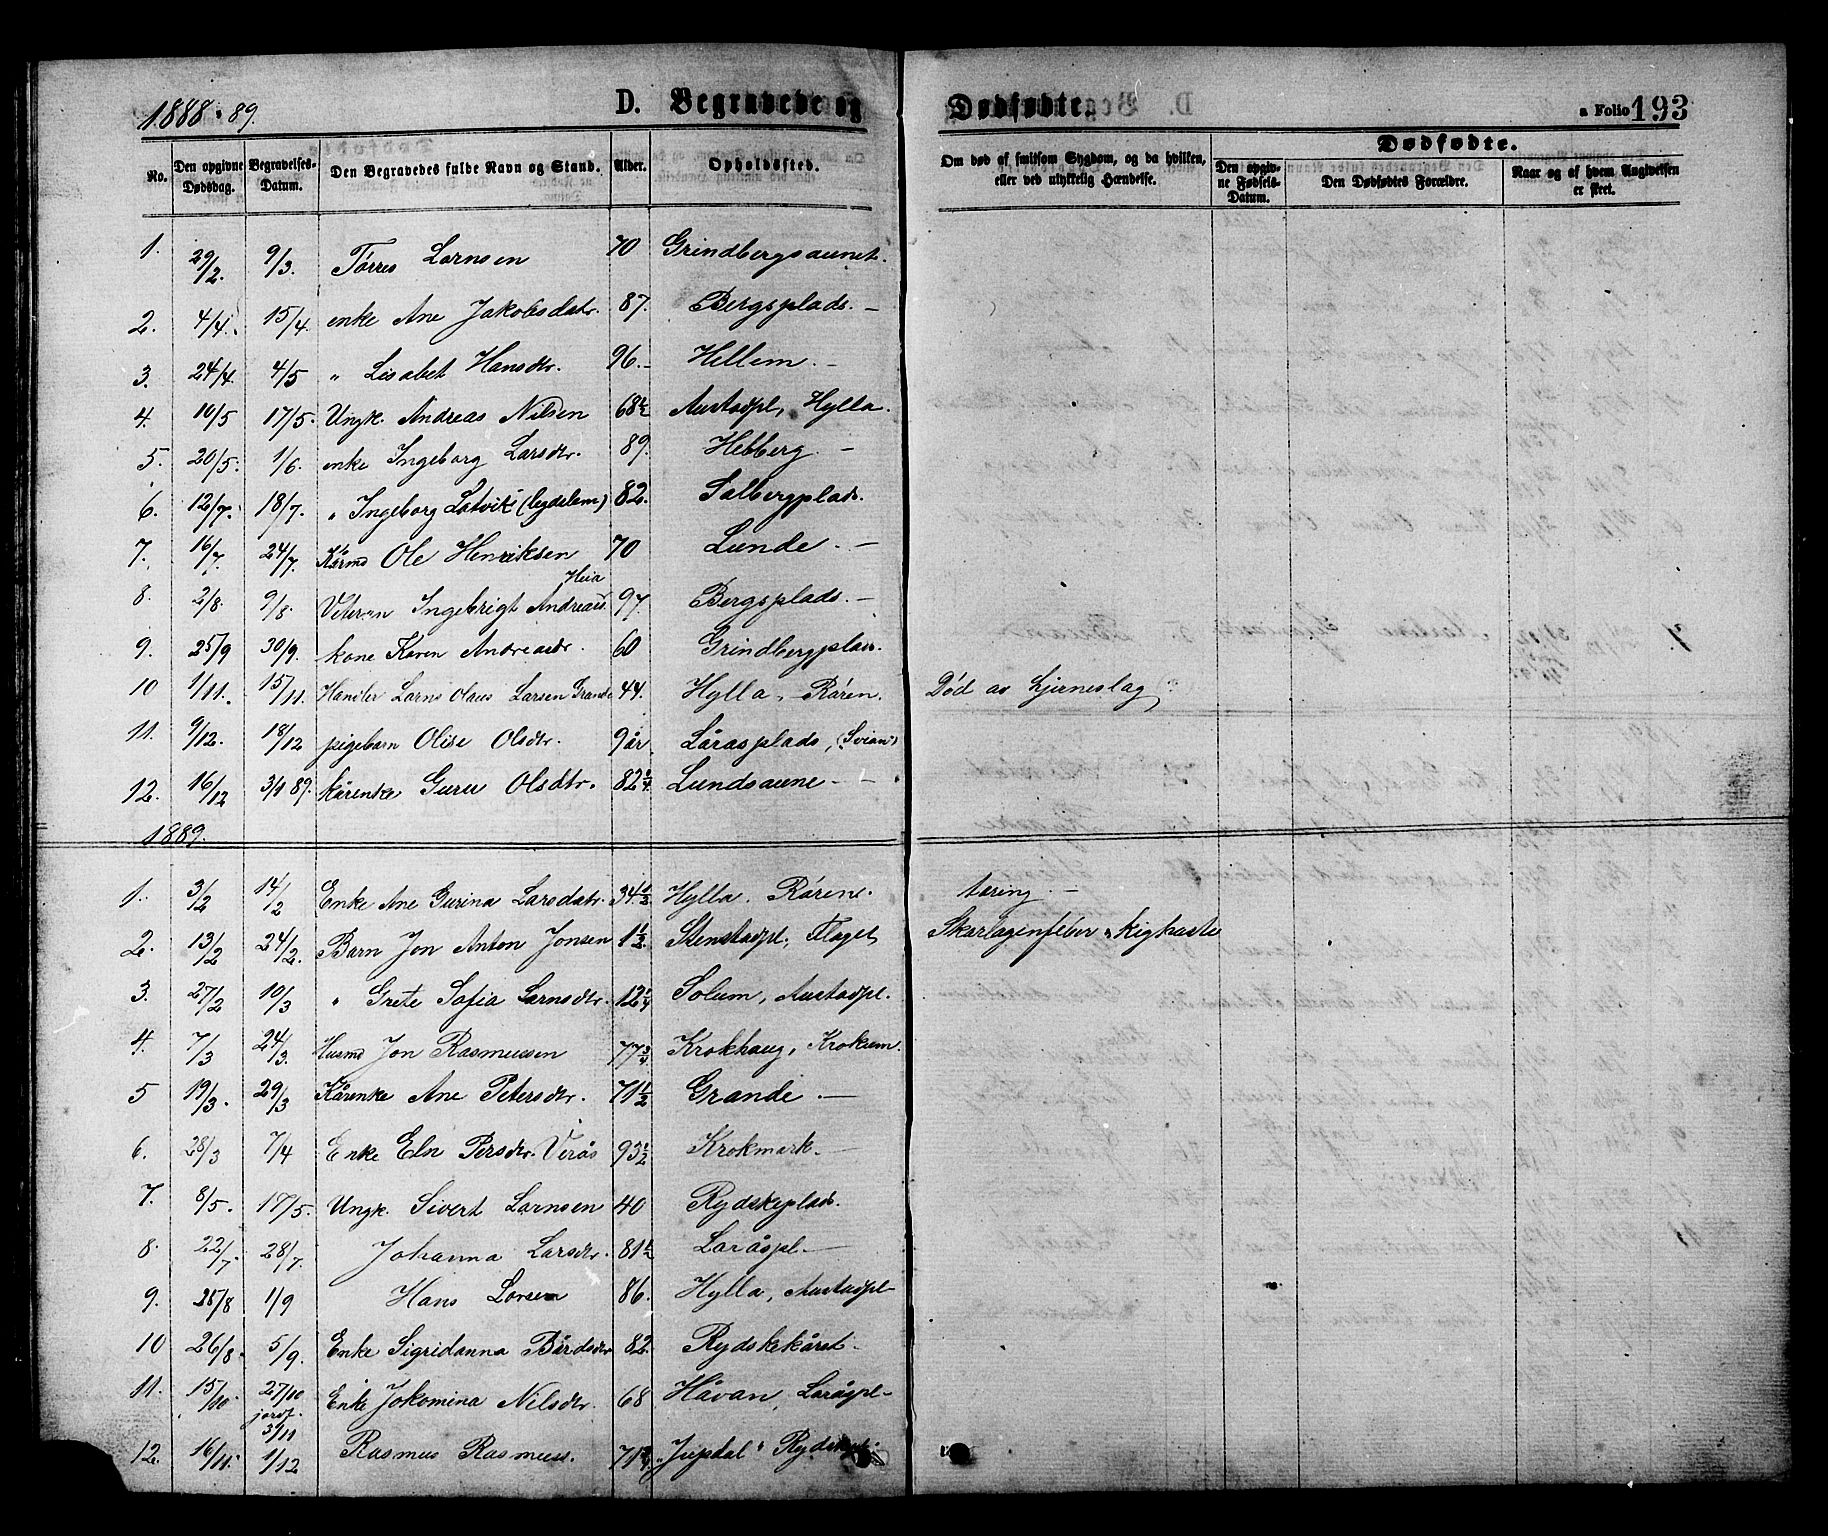 1888-89.
D. Begravede og Dødfødte.
a Folio 193
No.
Den opgivne Dødsdag.
Begravelses-Datum.
Den Begravedes fulde Navn og Stand.
Alder.
Opholdssted.
Om død af smitsom Sygdom, og da hvilken, eller ved ulykkelig Hændelse.
Dødfødte.
Den opgivne Fødsels-Datum.
Den Dødfødtes Forældre.
Naar og af hvem Angivelsen er skeet.
1. 29/2. 9/3. Tørres Larnsen 70 Grindbergsaunet.
2. 4/4. 15/4. enke Ane Jakobsdatr. 87. Bergsplads. —
3. 24/4. 4/5 " Lisabet Hansdtr. 96. Hellem. —
4. 10/5 17/5. Ungk. Andreas Nilsen 68½ Austadpl, Hylla.
5. 20/5. 1/6. enke Ingeborg Larsdtr. 89. Hebberg —
6. 12/7. 18/7. " Ingeborg Latvik (legdelem) 82. Salbergplads.
7. 16/7. 24/7. Kårmd Ole Henriksen 70 Lunde. —
8. 2/8. 9/8. Veteran Ingebrigt Andreass. Heia 97. Bergsplads. —
9. 25/9 30/9. kone Karen Andreasdr. 60 Grindbergplads.
10 1/11. 15/11. Handler Larns Olaus Larsen Grande 44. Hylla, Råren. Død av hjerneslag
11. 9/12. 18/12 pigebarn Olise Olsdtr. 9 år. Låråsplads, (Svian)
12. 16/12 3/1 89. kårenke Guru Olsdtr. 82¼ Lundsaune —
1889.
1. 3/2 14/2 Enke Ane Gurina Larsdatr. 34½ Hylla. Rårene. tæring —
2. 13/2 24/2. Barn Jon Anton Jonsen 1½. Stenstadpl. Flaget Skarlagenfeber & kighoste
3. 27/2 10/3 " Grete Sofia Larnsdtr. 12¼ Solum, Austadpl.
4. 7/3 24/3. Husmd Jon Rasmussen 77¾ Krokhaug, Krokum.
5 19/3. 29/3 Kårenke Ane Petersdtr. 71½ Grande. —
6. 28/3 7/4 Enke Eln Persdtr. Verås 93½ Krokmark. —
7. 8/5. 17/5. Ungk. Sivert Larnsen 40 Rydskeplads.
8. 22/7 28/7. Johanna Larsdtr. 81½ Laråspl. —
9. 25/8 1/9 Hans Larsen 86. Hylla, Austadpl—
10 26/8. 5/9. Enke Sigridanna Bårdsdtr 82. Rydskekåret.
11. 15/10. 27/10 jordf. 3/11 Enke Jakomina Nilsdtr. 68 Håvan, Laråspl—
12. 16/11. 1/12 Rasmus Rasmuss. 71 "Jupdal" Rydskepl.